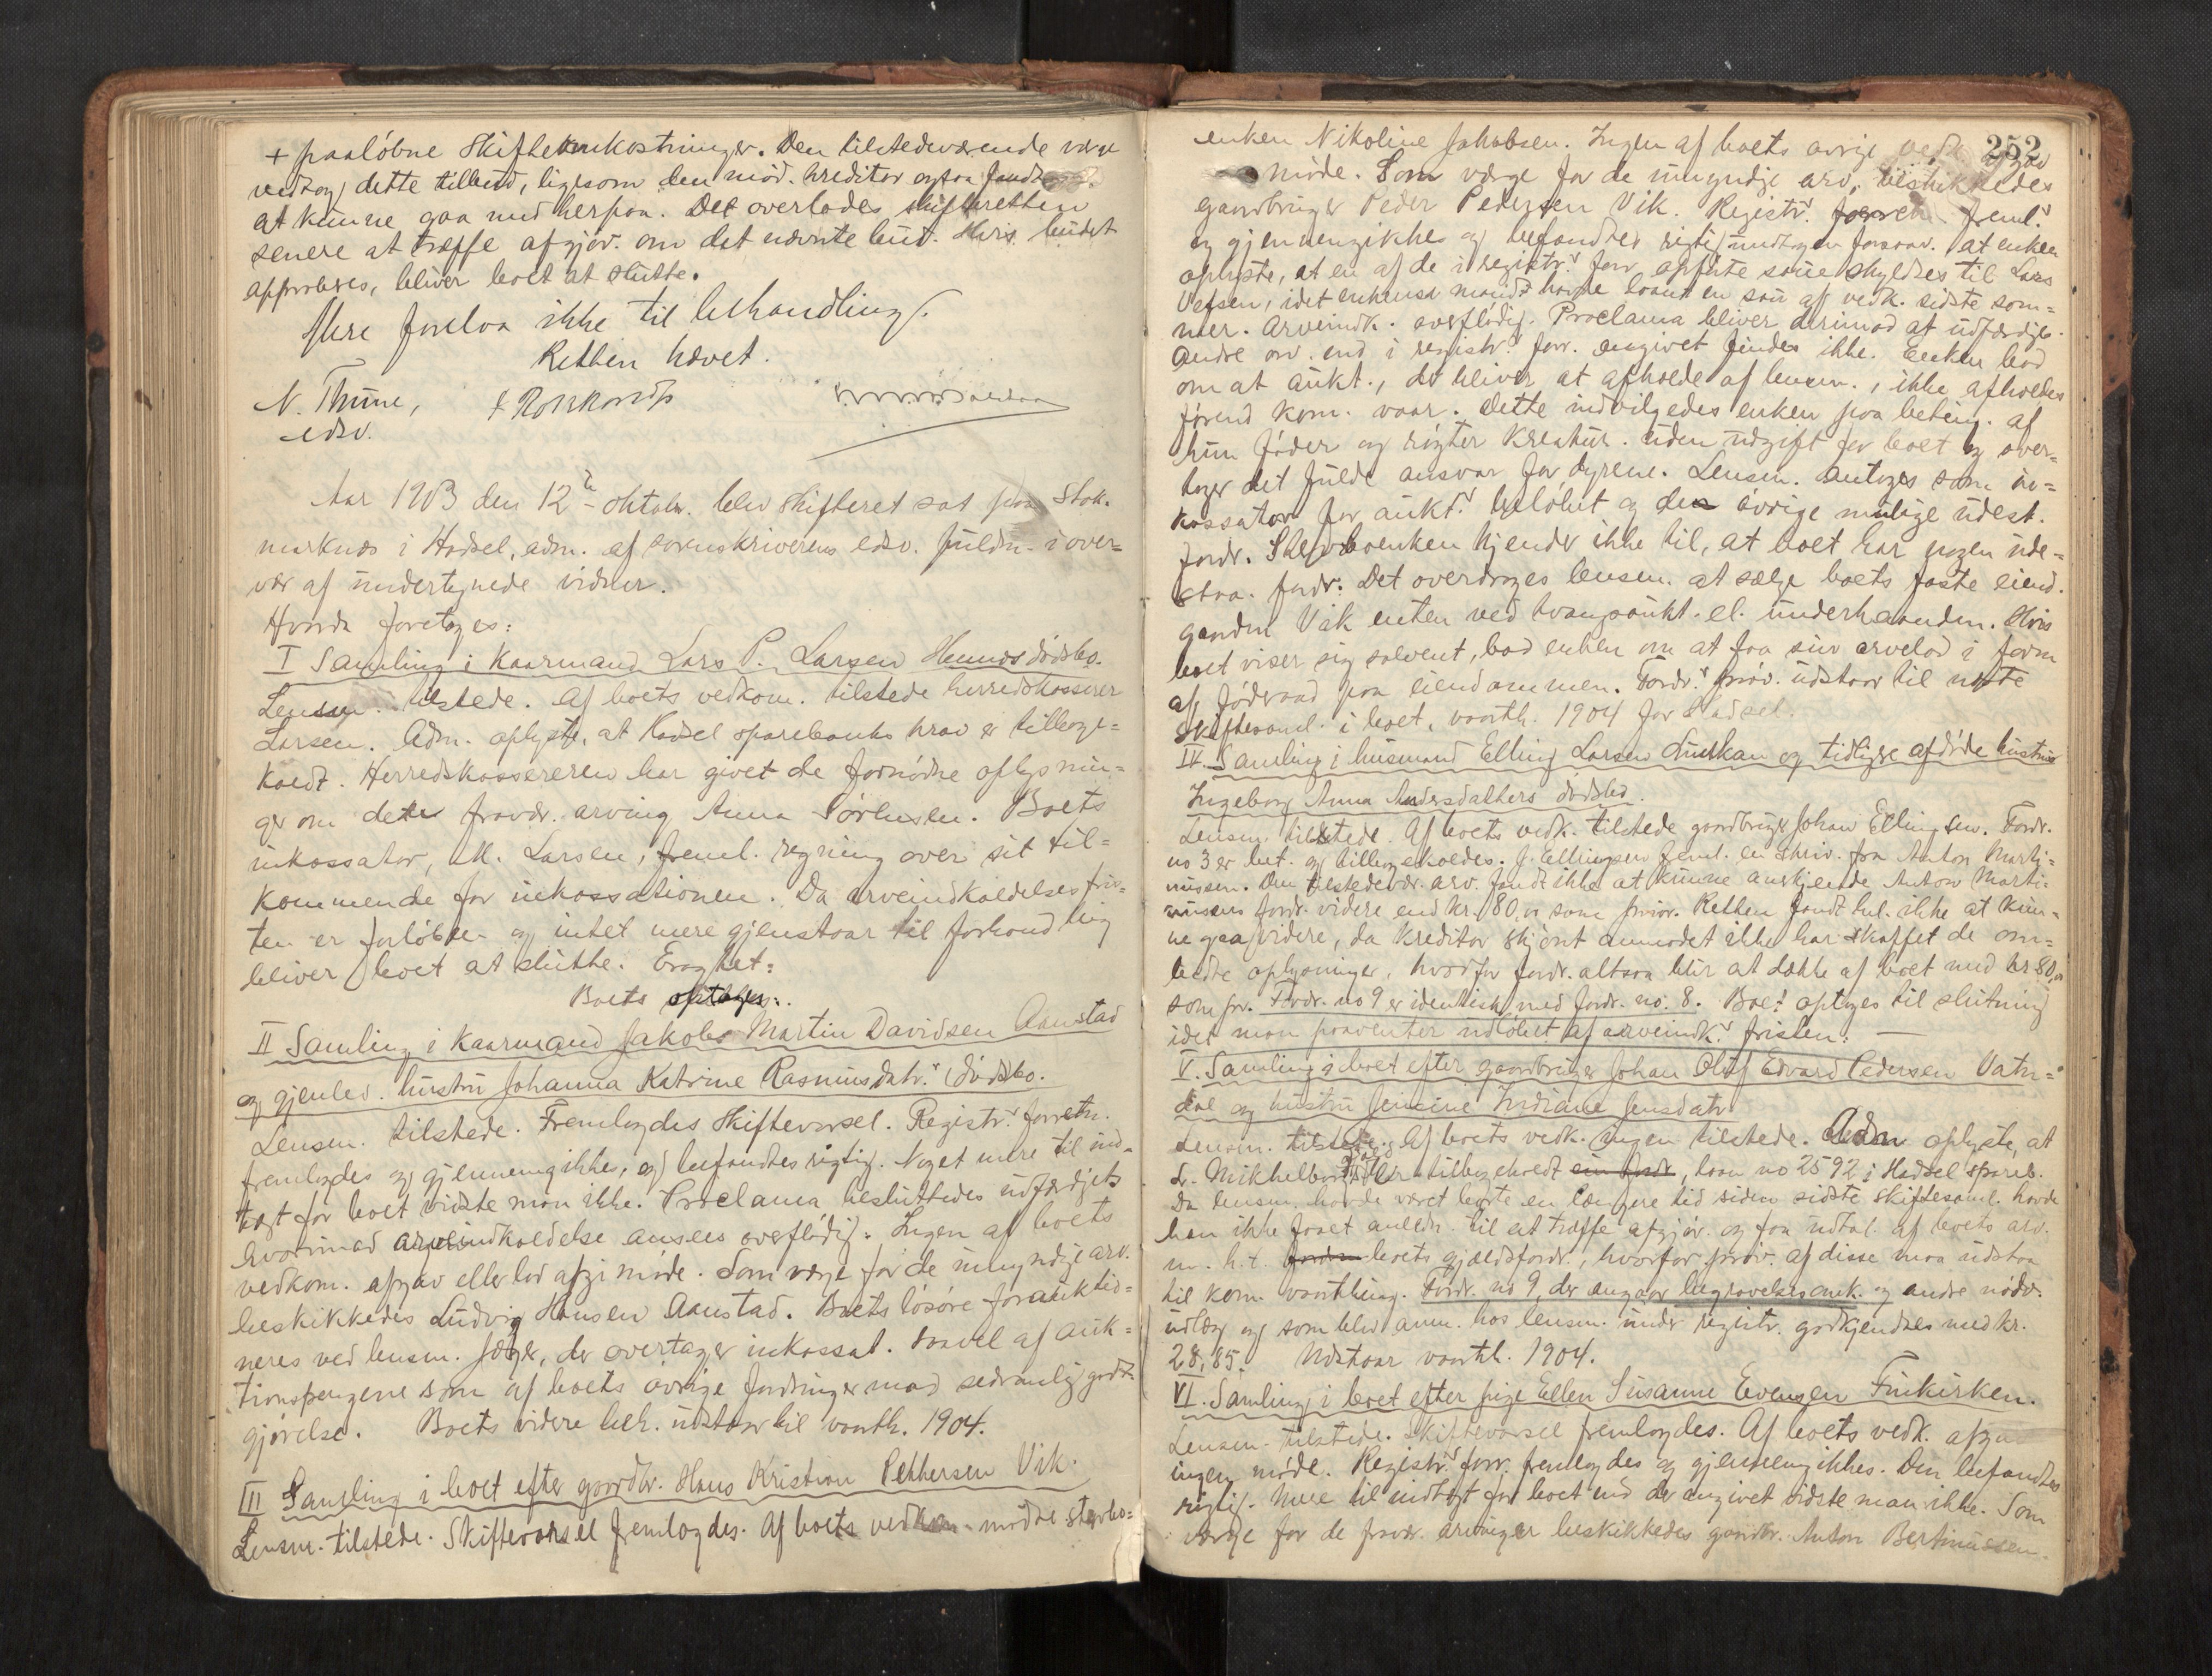 + paaløbne Skifteomkostninger. Den tilstedeværende værge
vedtog dette tilbud, ligesom den mød. kreditor ogsaa fandt
at kunne gaa med herpaa. Det overlodes skifteretten
senere at træffe afgjør. om det nævnte bud. Hvis budet
approberes, bliver boet at slutte.
Mere forelaa ikke til behandling.
Retten hævet.
N. Thune,
edsv.
Aar 1903 den 12te oktober. blev skifteret sat paa Stok-
marknæs i Hadsel, adm. af sorenskriverens edsv. fuldm. i over-
vær af undertegnede vidner.
Hvorda foretoges:
I Samling i kaarmand Lars P. Larsen Hennes dødsbo.
Lensm. tilstede. Af boets vedkom. tilstede herredskasserer
Larsen. Adm. oplyste, at Hadsel sparebanks krav er tilbage-
kaldt. Herredskassereren har givet de fornødne oplysnin-
ger om den fravær. arving Anna Sørensen. Boets
inkassator, M. Larsen, freml. regning over sit til-
kommende for inkassationen. Da arveindkaldelsesfris-
ten er forløben og intet mere gjenstaar til forhandling
bliver boet at slutte. Eragtet:
Boets optages:
II Samling i kaarmand Jakob Martin Davidsen Aanstad
og gjenlev. hustru Johanna Katrine Rasmusdatr.s dødsbo.
Lensm. tilstede. Fremlagdes skiftevarsel. Registr. forretn.
fremlagdes og gjennemgikkes, og befandtes rigtig. Noget mere til ind-
tægt for boet vidste man ikke. Proclama besluttedes udfærdiget
hvorimod arveindkaldelse ansees overflødig. Ingen af boets
vedkom. afgav eller lod afgi møde. Som værge for de umyndige arv.
beskikkedes Ludvig Hansen Aanstad. Boets løsøre forauktio-
neres ved lensm. Jæger, der overtager inkassat. saavel af auk-
tionspengene som af boets øvrige fordringer mod sedvanlig godt-
gjørelse. Boets videre beh. udstaar til vaarth. 1904.
III Samling i boet efter gaardbr. Hans Kristian Pettersen Vik.
Lensm. tilstede. Skiftevarsel fremlagdes. Af boets vedkom. mødte stervbo-
252
enken Nikoline Jakobsen. Ingen af boets øvrige vedk. afgav
møde. Som værge for de umyndige arv. beskikkedes
gaardbruger Peder Pedersen Vik. Registr. forretn. freml.
og gjennemgikkes og befandtes rigtig undtagen forsaav. at enken
oplyste, at en af de i registr. forr. opførte sauer skyldtes til Lars
idet enkens mand havde laant en sau af vedk. sidste som-
mer. Arveindk. overflødig. Proclama bliver derimod at udfærdige.
Andre arv. end i registr. forr. angivet findes ikke. Enken bad
om at aukt., der bliver at afholde af lensm., ikke afholdes
førend kom. vaar. Dette indvilgedes enken paa beting. af
hun foder og røgter kreatur. uden udgift for boet og over-
tager det fulde ansvar for dyrene. Lensm. antoges som in-
kassator for aukt. beløbet og de øvrige mulige udest.
fordr. Stervboenken kjender ikke til, at boet har nogen ude-
staa. fordr. Det overdroges lensm. at sælge boets faste eiend.
gaarden Vik enten ved tvangsaukt. el. underhaanden. Hvis
boet viser sig solvent, bad enken om at faa sin arvelod i form
af føderaad paa eiendommen. Fordr. prøv. udstaar til næste
skiftesaml. i boet, vaarth. 1904 for Hadsel.
IV. Samling i husmand Elling Larsen og tidligere afdøde hustru
Ingeborg Anna Andersdatters dødsbo.
Lensm. tilstede. Af boets vedk. tilstede gaardbruger Johan Ellingsen. Fordr.
no 3 er bet. og tilbagekaldes. J. Ellingsen freml. en skriv. fra Anton Marti-
nussen. Den tilstedevær. arv. fandt ikke at kunne anerkjende Anton Marti-
nussens fordr. videre end kr. 80,00 som prior. Retten fandt hel. ikke at kun-
ne gaa videre, da kreditor skjønt anmodet ikke har skaffet de om-
bedte oplysninger, hvorfor fordr. altsaa blir at dække af boet med kr 80,00
som pr. Fordr. no 9 er identisk med fordr. no. 8. Boet optages til slutning
idet man paaventer udløbet af arveindk. fristen.
V. Samling i boet efter gaardbruger Johan Olaf Edvard Pedersen Vatn-
dal og hustru Jensine Indiane Jensdatr.
Lensm. tilstede. Af boets vedk. ingen tilstede. Adm oplyste, at
tilbagekaldt, laan no 2592 i Hadsel spareb.
Da lensm. havde været borte en længere tid siden sidste skiftesaml. havde
han ikke faaet anledn. til at træffe afgjør. og faa udtal. af boets arv.
m. h. t. boets gjældsfordr., hvorfor prøv. af disse maa udstaa
til kom. vaarthing. Fordr. no 9, der angaar begravelsesomk. og andre nødv.
udlæg og som blev anm. hos lensm. under registr. godkjendtes med kr.
28,85. Udstaar vaarth. 1904.
VI. Samling i boet efter pige Ellen Susanne Evensen Finkirken.
Lensm. tilstede. Skiftevarsel fremlagdes. Af boets vedk. afgav
ingen møde. Registr. forr. fremlagdes og gjennemgikkes. Den befandtes
rigtig. Mere til indtægt for boet end der angivet vidste man ikke. Som
værge for de fravær. arvinger beskikkedes gaardbr. Anton Bertinussen.